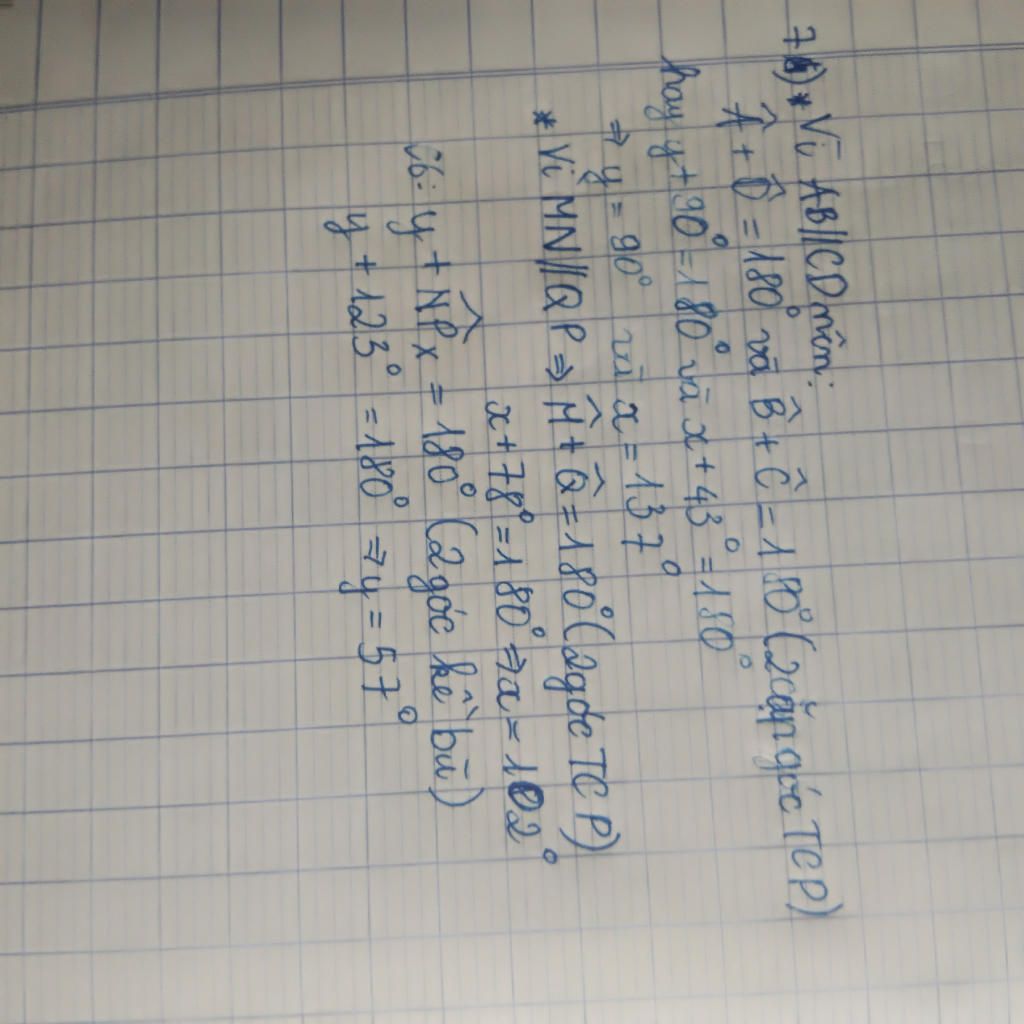 7b) * Vì AB//CD nên:
Â + D̂ = 180° và B̂ + Ĉ = 180° (2 cặp góc TCP)
hay y + 90° = 180° và x + 43° = 180°
⇒ y = 90° và x = 137°
* Vì MN//QP ⇒ M̂ + Q̂ = 180° (2 góc TCP)
x + 78° = 180° ⇒ x = 102°
y + N̂Px = 180° (2 góc kề bù)
y + 123° = 180° ⇒ y = 57°